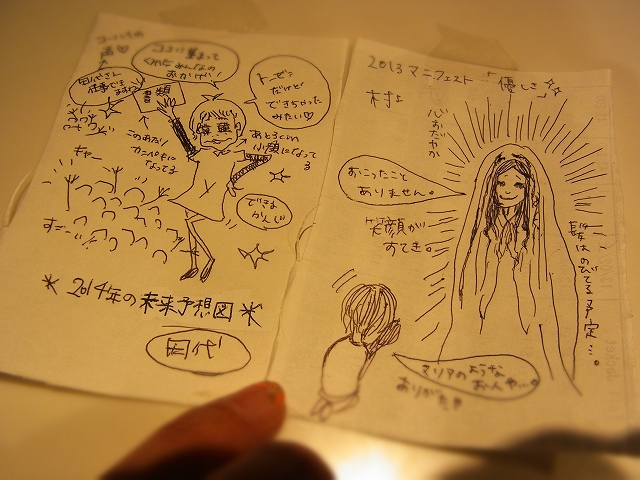 ココに集まって
くれたみんなの
おかげ!
書類
トーゼン
だけど
できちゃった
みたい♡
あと3cm
小顔になって
る
このあたり
カンペキに
なってる
キャー
できる
かんじ
すご…
2014年の未来予想図
田代
2013 マニフェスト「優しさ」
村上
心おだやか
おこったこと
ありません。
笑顔が
すてき。
髪はのびてる予定…。
マリアのような
お人や…。
ありがたや